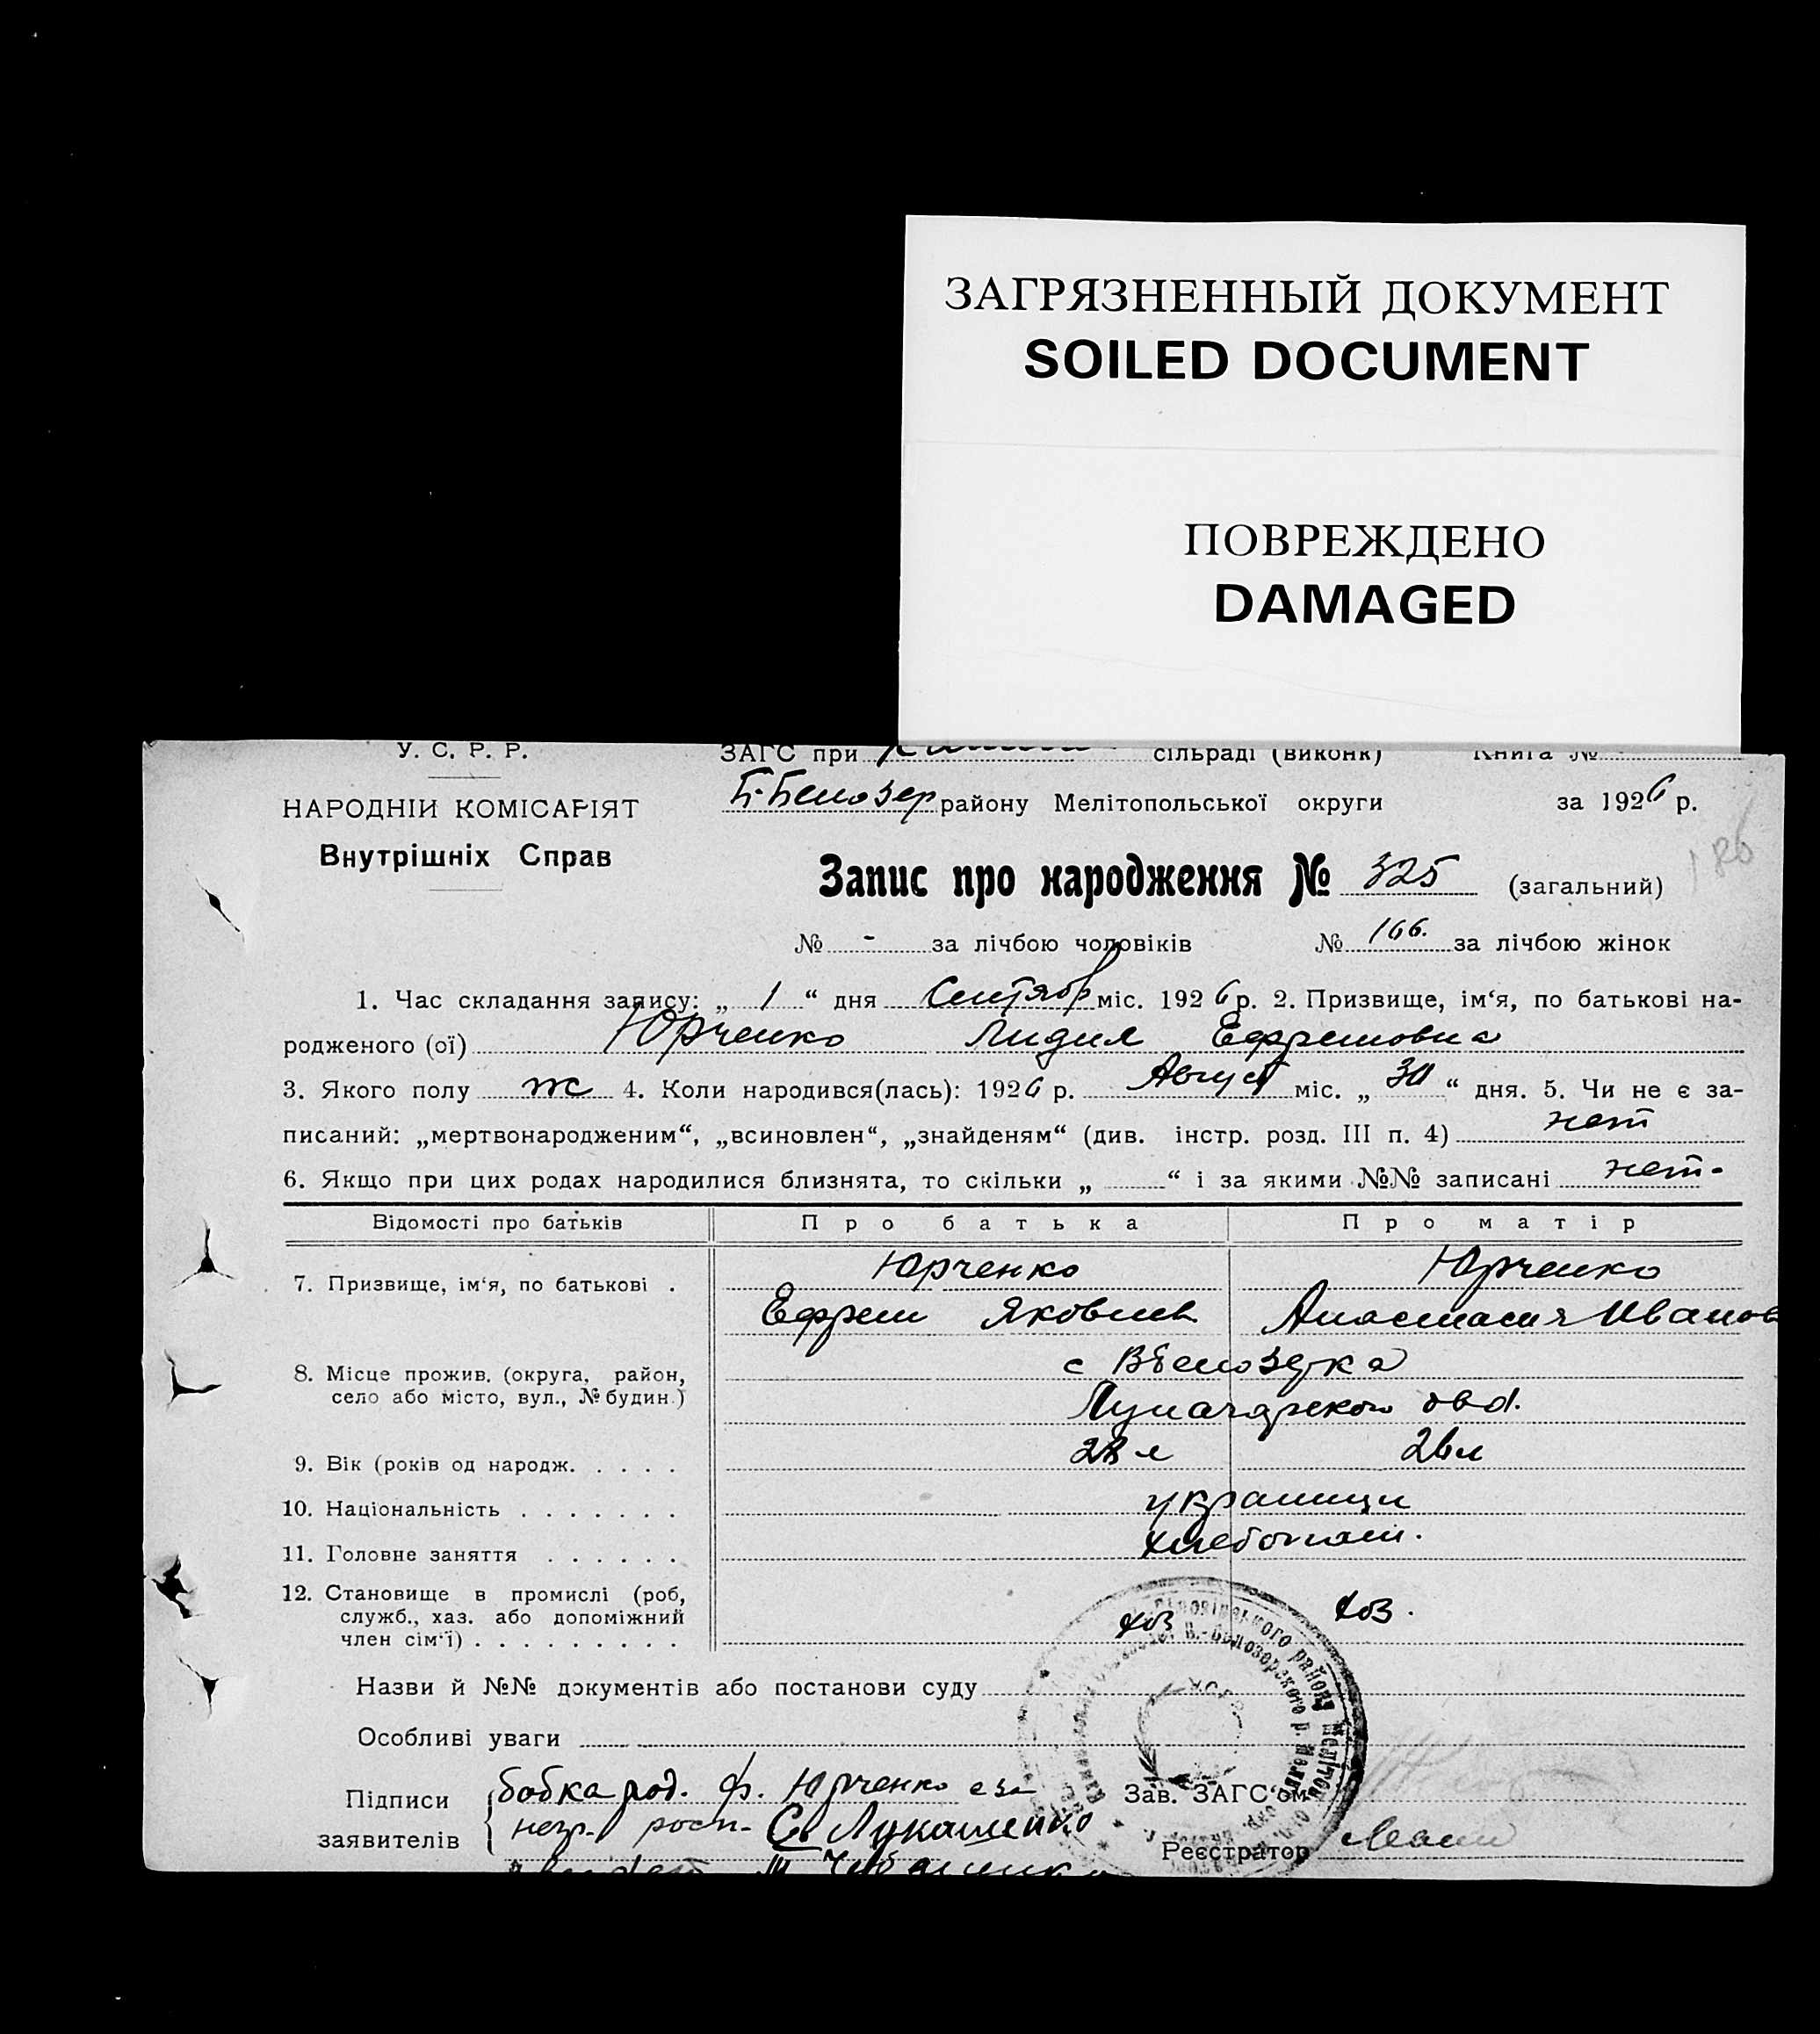 ЗАГРЯЗНЕННЫЙ ДОКУМЕНТ
SOILED DOCUMENT
ПОВРЕЖДЕНО
DAMAGED
У. С. Р. Р.
ЗАГС при сільраді (виконк) Книга №
НАРОДНІЙ КОМІСАРІЯТ
Б-Белозер району Мелітопольської округи за 1926 р.
Внутрішніх Справ
Запис про народження № 325 (загальний)
186
№ - за лічбою чоловіків № 166. за лічбою жінок
1. Час складання запису: „ 1 “ дня Сентябр міс. 1926 р. 2. Призвище, ім‘я, по батькові на-
родженого (ої) Юрченко Лидия Ефремовна
3. Якого полу ж 4. Коли народився(лась): 1926 р. Август міс. „ 30 “ дня. 5. Чи не є за-
писаний: „мертвонародженим“, „всиновлен“, „знайденям“ (див. інстр. розд. III п. 4) нет
6. Якщо при цих родах народилися близнята, то скільки „ “ і за якими №№ записані нет-
Відомості про батьків Про батька Про матір
7. Призвище, ім‘я, по батькові . Юрченко Юрченко
Ефрем Яковлев Анастасия Иванов
8. Місце прожив. (округа, район,
село або місто, вул., № будин.)
с
Луначарского
9. Вік (років од народж. . . . . 26л
10. Національність . . . . . . . украинци
11. Головне заняття . . . . . . хлебопаш.
12. Становище в промислі (роб,
служб., хаз. або допоміжний
член сім‘ї) . . . . . . . . . хоз хоз.
Назви й №№ документів або постанови суду
Особливі уваги
Підписи
заявителів
бабка род. Ф. Юрченко а за
негр. росп. С. Лукашенко
Зав. ЗАГС‘ом
Реєстратор